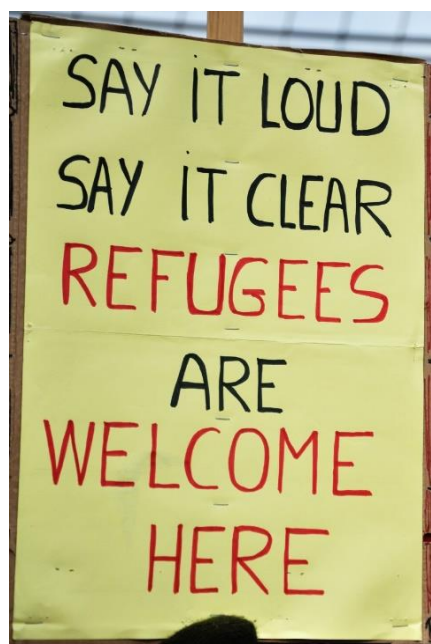 SAY iT LOUD
SAY iT CLEAR
REFUGEES
ARE
WELCOME
HERE